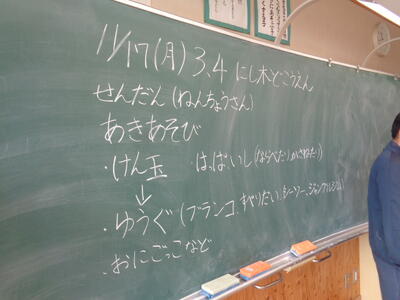 11/17(月) 3、4 にし木どこうえん
せんだん (ねんちょうさん)
あきあそび
・けん玉 はっぱ、いし(ならべたり、かさねたり)
↓
・ゆうぐ(ブランコ、すべりだい、シーソー、ジャングルジム)
・おにごっこなど